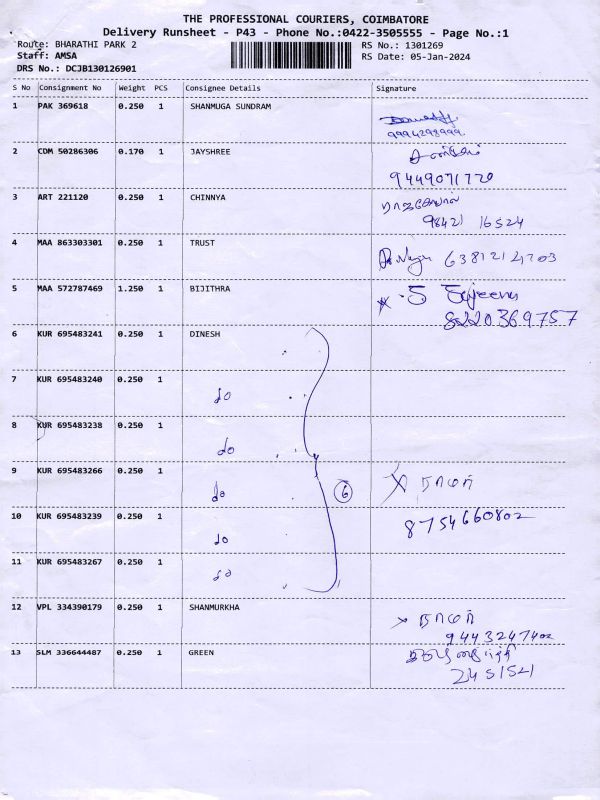 THE PROFESSIONAL COURIERS, COIMBATORE
Delivery Runsheet - P43 - Phone No.:0422-3505555 - Page No.:1
Route: BHARATHI PARK 2 RS No.: 1301269
Staff: AMSA RS Date: 05-Jan-2024
DRS No.: DCJB130126901
S No Consignment No Weight PCS Consignee Details Signature
1 PAK 369618 0.250 1 SHANMUGA SUNDRAM
9994298999
2 COM 50286306 0.170 1 JAYSHREE
9449071770
3 ART 221120 0.250 1 CHINNYA
98421 16524
4 MAA 863303301 0.250 1 TRUST
6381214703
5 MAA 572787469 1.250 1 BIJITHRA
8220369757
6 KUR 695483241 0.250 1 DINESH
7 KUR 695483240 0.250 1
do
8 KUR 695483238 0.250 1
do
9 KUR 695483266 0.250 1
do 6 ராமர்
10 KUR 695483239 0.250 1 8754660802
do
11 KUR 695483267 0.250 1
do
12 VPL 334390179 0.250 1 SHANMURKHA
ராமர்
9443247402
13 SLM 336644487 0.250 1 GREEN
2451521